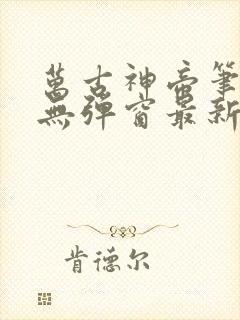 萬古神帝筆
無彈窗最新
肯德尔